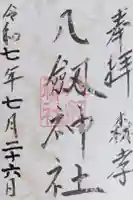 奉拝
八剱神社
令和七年七月二十六日